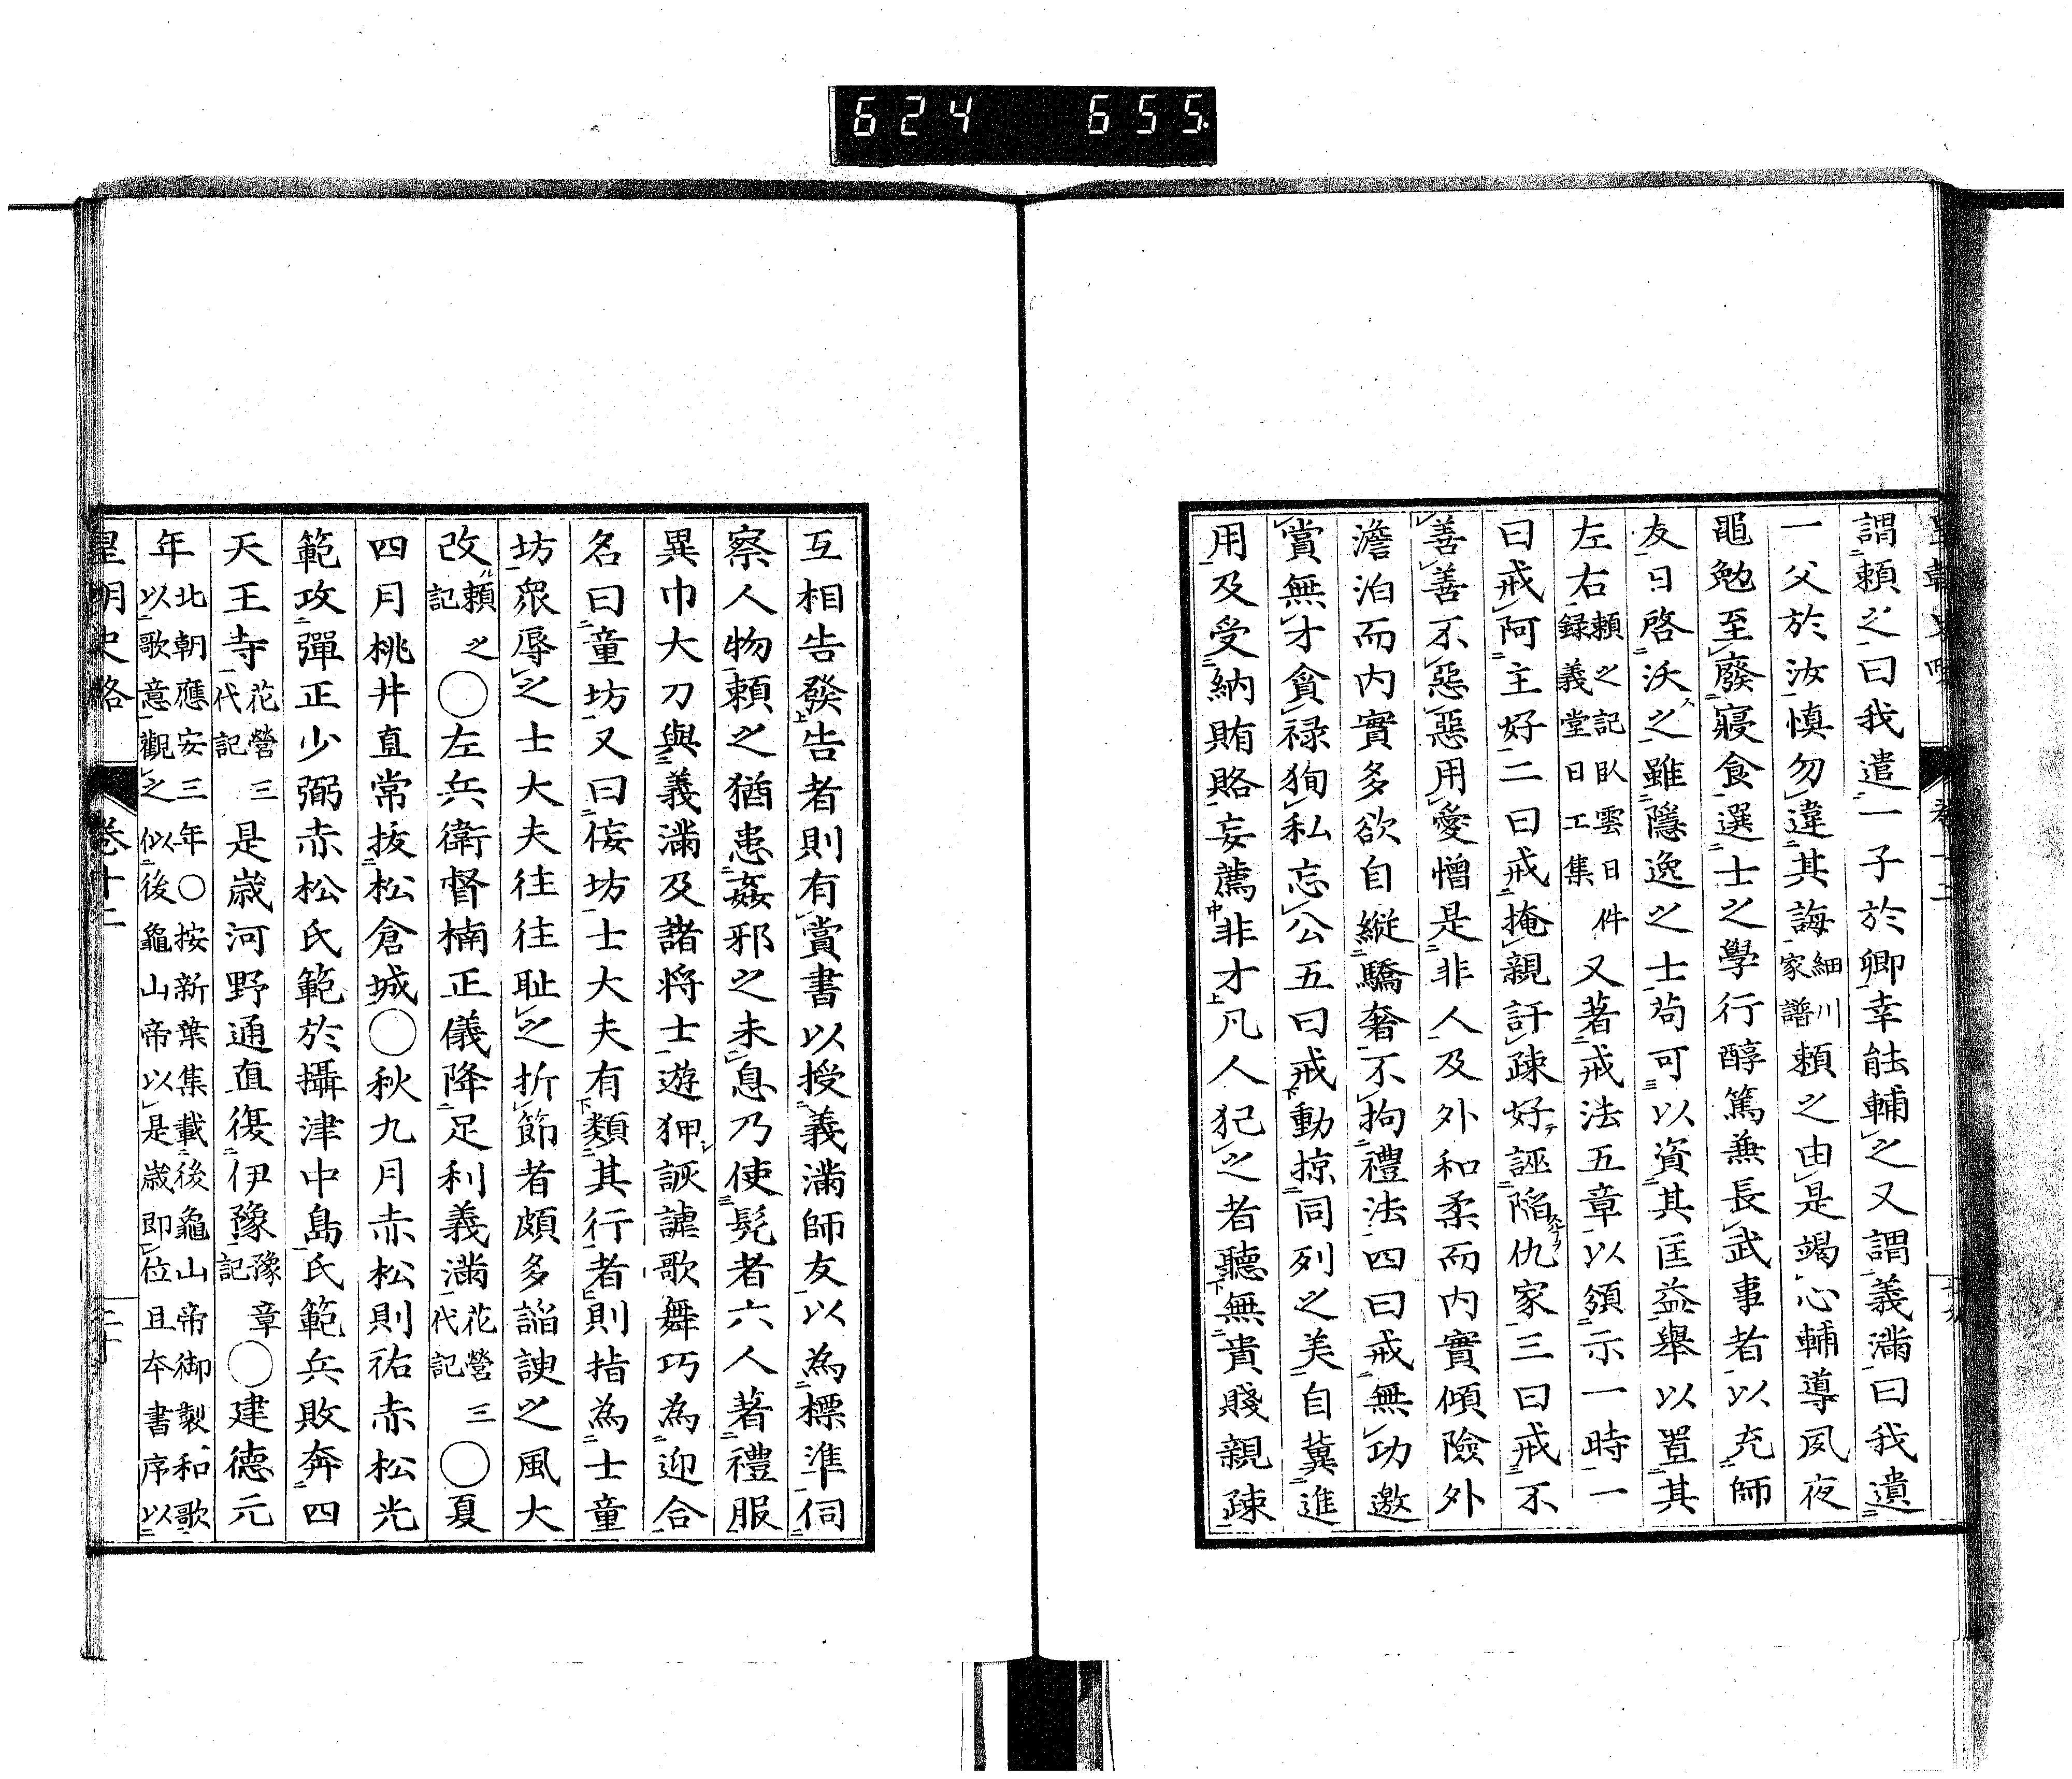 624 655.
謂賴之曰我遣一子於卿幸能輔之又謂義滿曰我遺
一父於汝慎勿違其誨細川家譜賴之由是竭心輔導夙夜
黽勉至廢寢食選士之學行醇篤兼長武事者以充師
友日啓沃之雖隱逸之士苟可以資其匡益舉以置其
左右賴之記臥雲日件録義堂日工集又著戒法五章以頒示一時一
曰戒阿主好二曰戒掩親訐疎好誣陷仇家三曰戒不
善善不惡惡用愛憎是非人及外和柔而內實傾險外
澹泊而內實多欲自縱驕奢不拘禮法四曰戒無功邀
賞無才貪禄狥私忘公五曰戒動掠同列之美自冀進
用及受納賄賂妄薦非才凡人犯之者聽無貴賤親疎
互相告發告者則有賞書以授義滿師友以為標準伺
察人物賴之猶患姦邪之未息乃使髡者六人著禮服
異巾大刀與義滿及諸将士遊狎詼謔歌舞巧為迎合
名曰童坊又曰侫坊士大夫有類其行者則指為士童
坊衆辱之士大夫往往耻之折節者頗多諂諛之風大
改賴之記○左兵衛督楠正儀降足利義滿花營三代記○夏
四月桃井直常拔松倉城○秋九月赤松則祐赤松光
範攻彈正少弼赤松氏範於攝津中島氏範兵敗奔四
天王寺花營三代記是歲河野通直復伊豫豫章記○建德元
年北朝應安三年○按新葉集載後龜山帝御製和歌以歌意觀之似後龜山帝以是歲即位且本書序以
皇朝史略 卷十二 二十